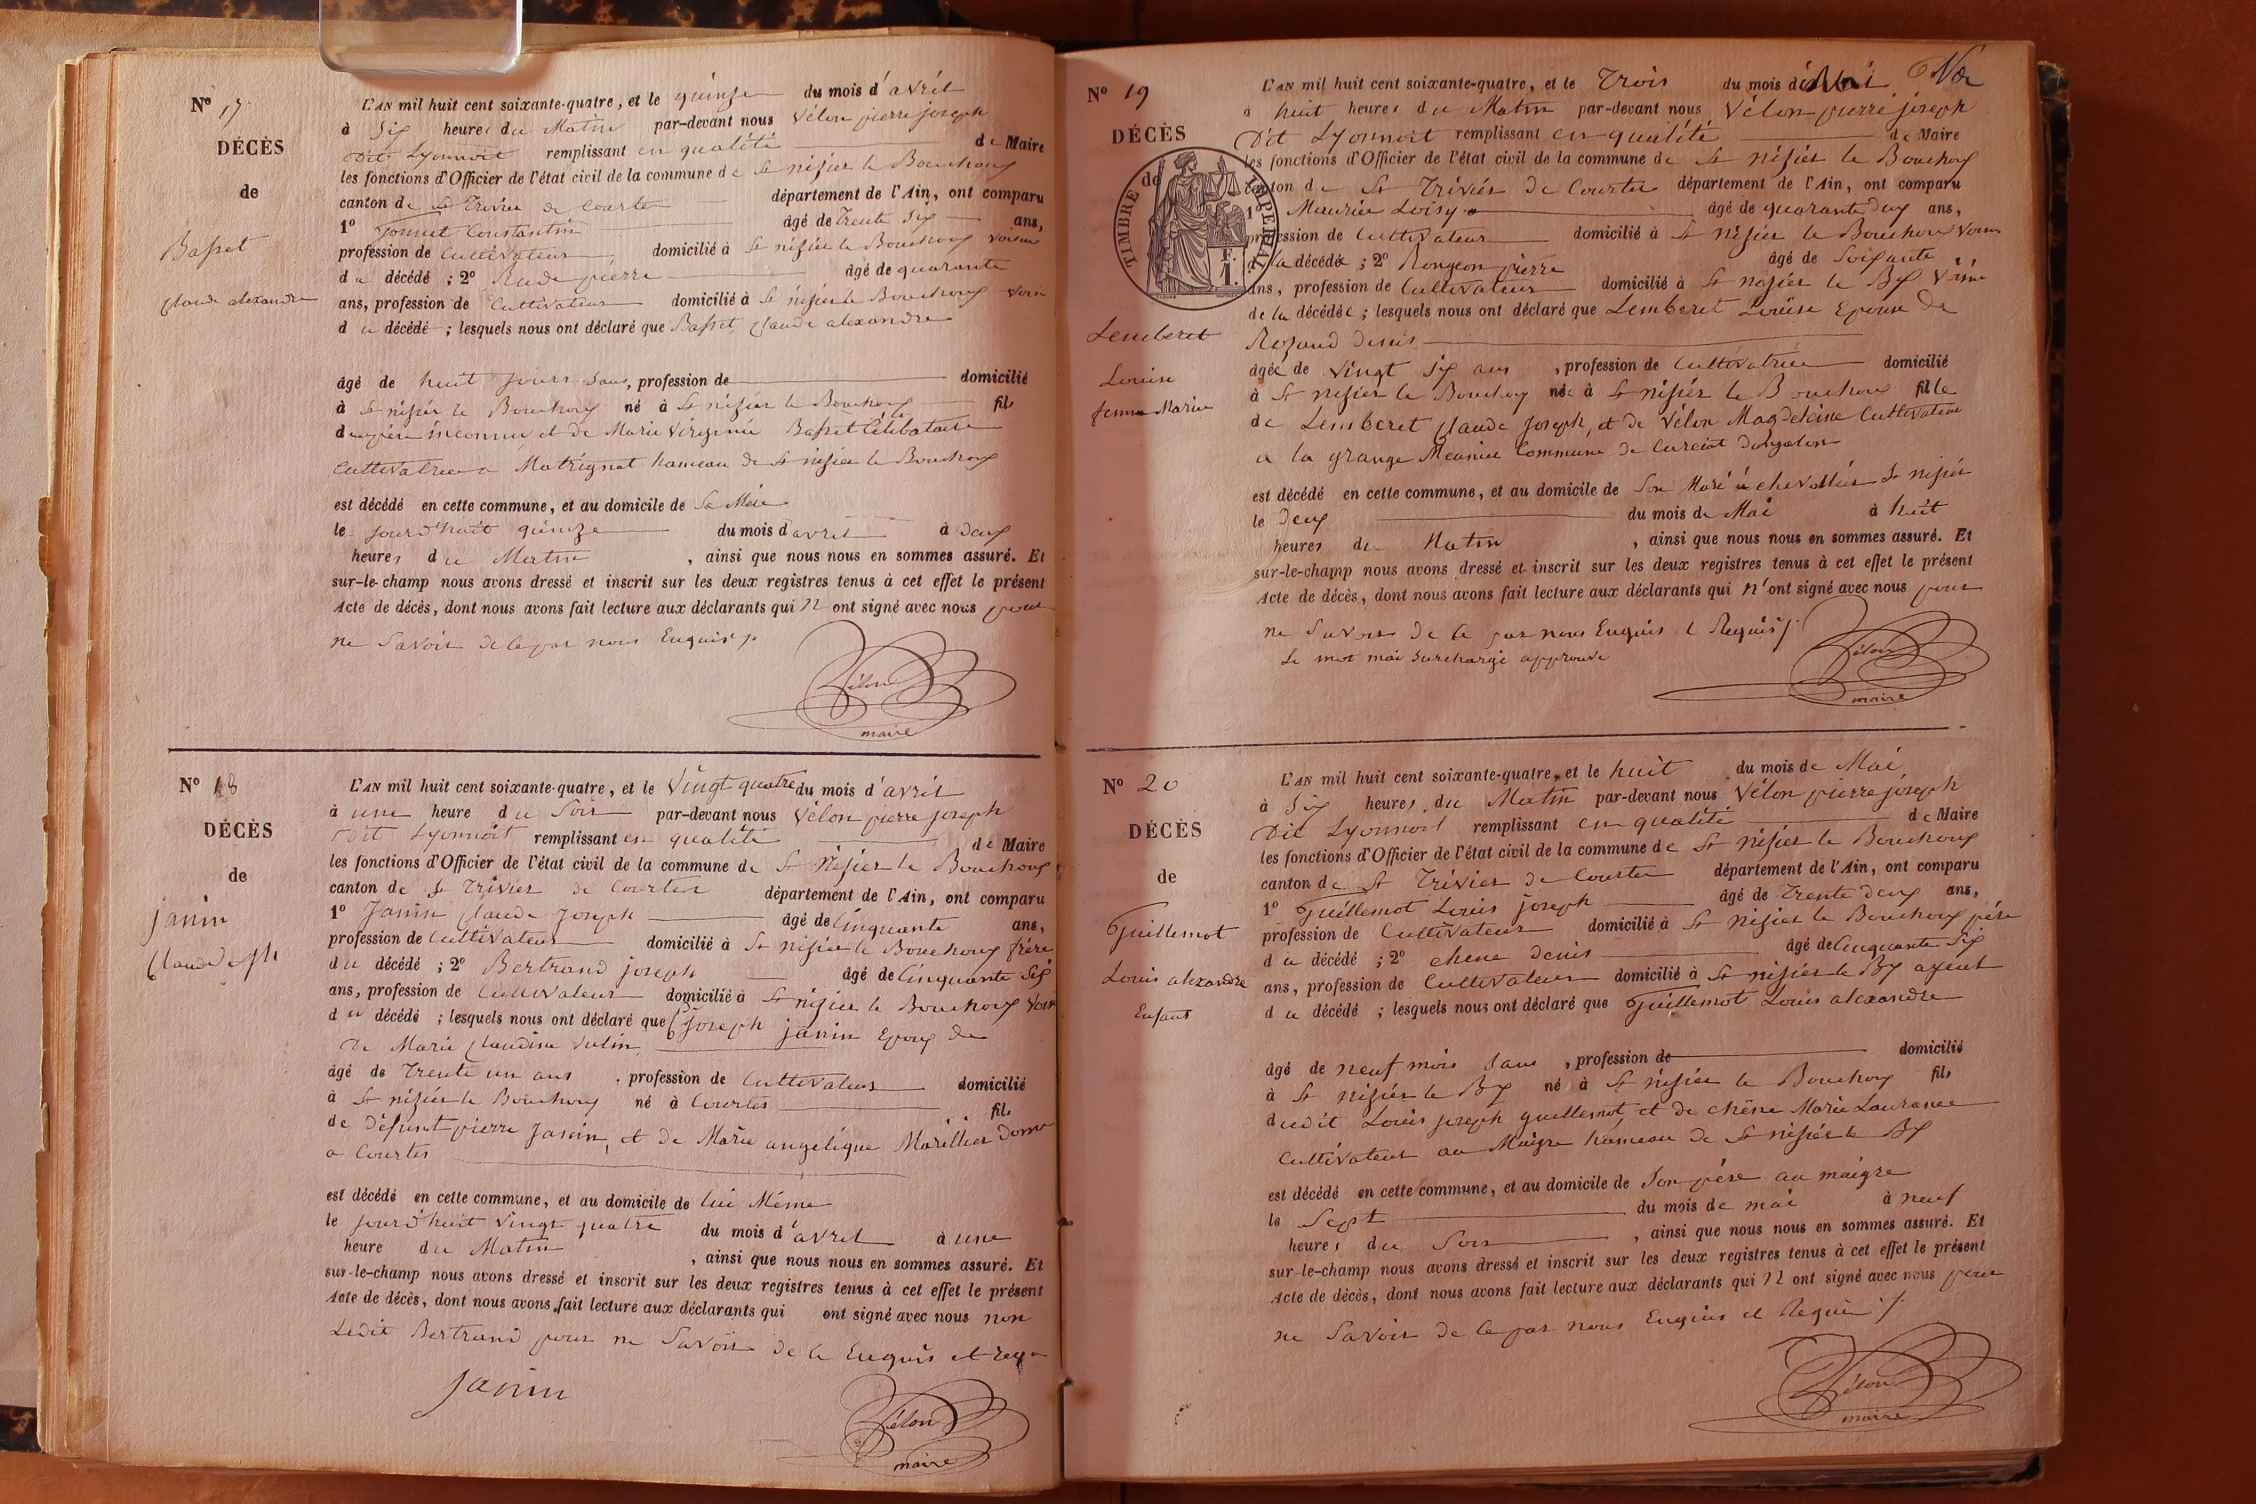 N° 17
DÉCÈS
de
Basset
Claude alexandre
L'AN mil huit cent soixante-quatre, et le quinze du mois d'avril
à Six heures du Matin par-devant nous Vélon pierre joseph
Dit Lyonnoit remplissant en qualité de Maire
les fonctions d'Officier de l'état civil de la commune de St nisier le Bouchoux
canton de St Trivier de Courtes département de l'Ain, ont comparu
1° Constantin âgé de Trente Six ans,
profession de Cultivateur domicilié à St nisier le Bouchoux voisin
du décédé ; 2° pierre âgé de quarante
ans, profession de Cultivateur domicilié à St nisier le Bouchoux voisin
du décédé ; lesquels nous ont déclaré que Basset Claude alexandre
âgé de huit jours Sans, profession de domicilié
à St nisier le Bouchoux né à St nisier le Bouchoux fils
de père inconnu et de Marie Virginie Basset Célibataire
Cultivatrice a Matrignat hameau de St nisier le Bouchoux
est décédé en cette commune, et au domicile de Sa Mère
le jourd'huit quinze du mois d'avril à deux
heures du Matin , ainsi que nous nous en sommes assuré. Et
sur-le-champ nous avons dressé et inscrit sur les deux registres tenus à cet effet le présent
Acte de décès, dont nous avons fait lecture aux déclarants qui n'ont signé avec nous pour
ne Savoir de ce par nous Enquis
Vélon
maire
N° 18
DÉCÈS
de
janin
Claude jph
L'AN mil huit cent soixante-quatre, et le Vingt quatre du mois d'avril
à une heure du Soir par-devant nous Vélon pierre joseph
Dit Lyonnoit remplissant en qualité de Maire
les fonctions d'Officier de l'état civil de la commune de St Nisier le Bouchoux
canton de St Trivier de Courtes département de l'Ain, ont comparu
1° Janin Claude Joseph âgé de Cinquante ans,
profession de Cultivateur domicilié à St nisier le Bouchoux frère
du décédé ; 2° Bertrand joseph âgé de Cinquante Six
ans, profession de Cultivateur domicilié à St nisier le Bouchoux Voisin
du décédé ; lesquels nous ont déclaré que Joseph janin Epoux de
De Marie Claudine
âgé de Trente un ans , profession de Cultivateur domicilié
à St nisier le Bouchoux né à Courtes fils
de Défunt pierre Janin, et de Marie angélique Marillier
a Courtes
est décédé en cette commune, et au domicile de lui Même
le jourd'huit Vingt quatre du mois d'avril à une
heure du Matin , ainsi que nous nous en sommes assuré. Et
sur-le-champ nous avons dressé et inscrit sur les deux registres tenus à cet effet le présent
Acte de décès, dont nous avons fait lecture aux déclarants qui ont signé avec nous non
Ledit Bertrand pour ne Savoir de ce Enquis et
Janin
Vélon
maire
N° 19
DÉCÈS
de
TIMBRE IMPERIAL
F.
1.
Lemberet
Louise
femme Marin
L'AN mil huit cent soixante-quatre, et le Trois du mois de Mai
à huit heures du Matin par-devant nous Vélon pierre joseph
Dit Lyonnoit remplissant en qualité de Maire
les fonctions d'Officier de l'état civil de la commune de St nisier le Bouchoux
canton de St Trivier de Courtes département de l'Ain, ont comparu
1° Maurier Loisy âgé de quarante deux ans,
profession de Cultivateur domicilié à St nisier le Bouchoux Voisin
de la décédée ; 2° Rongeon pierre âgé de Soixante
ans, profession de Cultivateur domicilié à St nisier le Bx Voisin
de la décédée ; lesquels nous ont déclaré que Lemberet Louise Epouse de
denis
âgée de Vingt Six ans , profession de Cultivatrice domicilié
à St nisier le Bouchoux née à St nisier le Bouchoux fille
de Lemberet Claude Joseph, et de Vélon Magdeleine Cultivateur
a la grange Meunier Commune de Curciat dongalon
est décédé en cette commune, et au domicile de Son Mari à St nisier
le Deux du mois de Mai à huit
heures du Matin , ainsi que nous nous en sommes assuré. Et
sur-le-champ nous avons dressé et inscrit sur les deux registres tenus à cet effet le présent
Acte de décès, dont nous avons fait lecture aux déclarants qui n'ont signé avec nous pour
ne Savoir de ce par nous Enquis & Requis
Le mot mai Surchargé approuvé
Vélon
maire
N° 20
DÉCÈS
de
Guillemot
Louis alexandre
Enfant
L'AN mil huit cent soixante-quatre, et le huit du mois de Mai
à Six heures du Matin par-devant nous Vélon pierre joseph
Dit Lyonnoit remplissant en qualité de Maire
les fonctions d'Officier de l'état civil de la commune de St nisier le Bouchoux
canton de St Trivier de Courtes département de l'Ain, ont comparu
1° Guillemot Louis joseph âgé de Trente deux ans,
profession de Cultivateur domicilié à St nisier le Bouchoux père
du décédé ; 2° chene denis âgé de Cinquante Six
ans, profession de Cultivateur domicilié à St nisier le Bx ayeul
du décédé ; lesquels nous ont déclaré que Guillemot Louis alexandre
âgé de neuf mois Sans , profession de domicilié
à St nisier le Bx né à St nisier le Bouchoux fils
dudit Louis joseph guillemot, et de chêne Marie Laurance
Cultivateur au Maigre hameau de St nisier le Bx
est décédé en cette commune, et au domicile de Son père au maigre
le Sept du mois de mai à neuf
heures du Soir , ainsi que nous nous en sommes assuré. Et
sur-le-champ nous avons dressé et inscrit sur les deux registres tenus à cet effet le présent
Acte de décès, dont nous avons fait lecture aux déclarants qui n'ont signé avec nous pour
ne Savoir de ce par nous Enquis et Requis
Vélon
maire